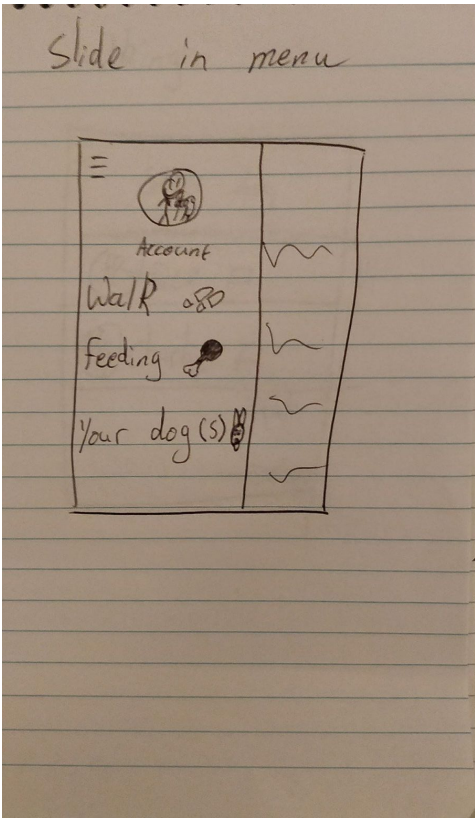 Slide in menu
Account
Walk
feeding
Your dog(s)